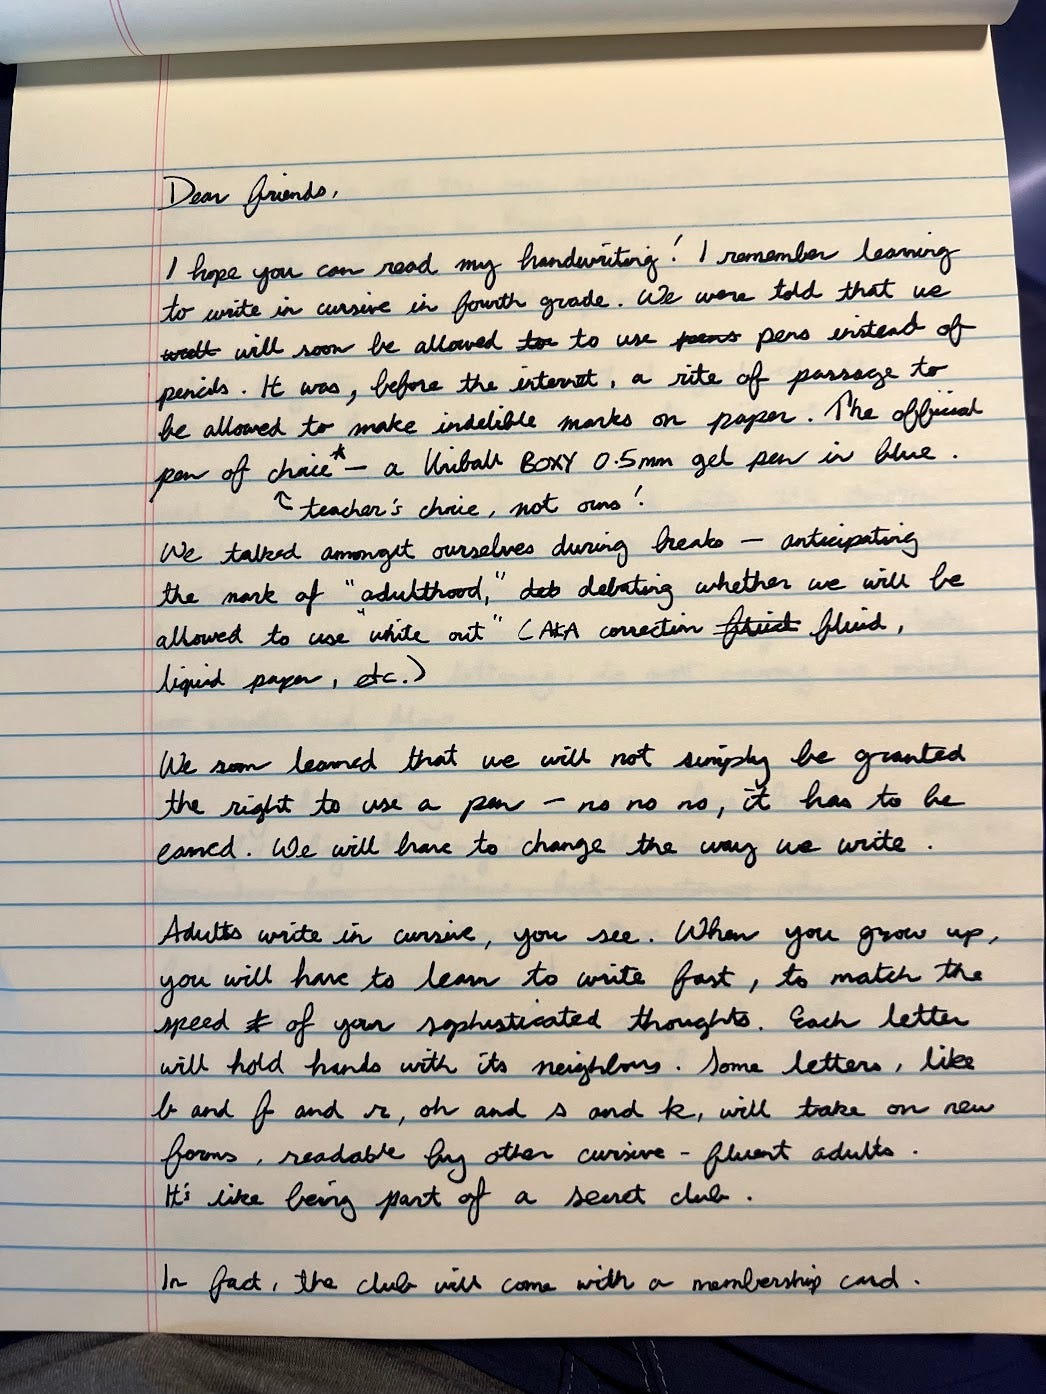 Dear friends,
I hope you can read my handwriting! I remember learning
to write in cursive in fourth grade. We were told that we
will soon be allowed to use pens instead of
pencils. It was, before the internet, a rite of passage to
be allowed to make indelible marks on paper. The official
pen of choice* — a Uniball BOXY 0.5mm gel pen in blue.
↑ teacher's choice, not ours!
We talked amongst ourselves during breaks — anticipating
the mark of "adulthood," debating whether we will be
allowed to use "white out" (AKA correction fluid,
liquid paper, etc.)
We soon learned that we will not simply be granted
the right to use a pen — no no no, it has to be
earned. We will have to change the way we write.
Adults write in cursive, you see. When you grow up,
you will have to learn to write fast, to match the
speed of your sophisticated thoughts. Each letter
will hold hands with its neighbors. Some letters, like
b and f and r, oh and s and k, will take on new
forms, readable by other cursive-fluent adults.
It's like being part of a secret club.
In fact, the club will come with a membership card.